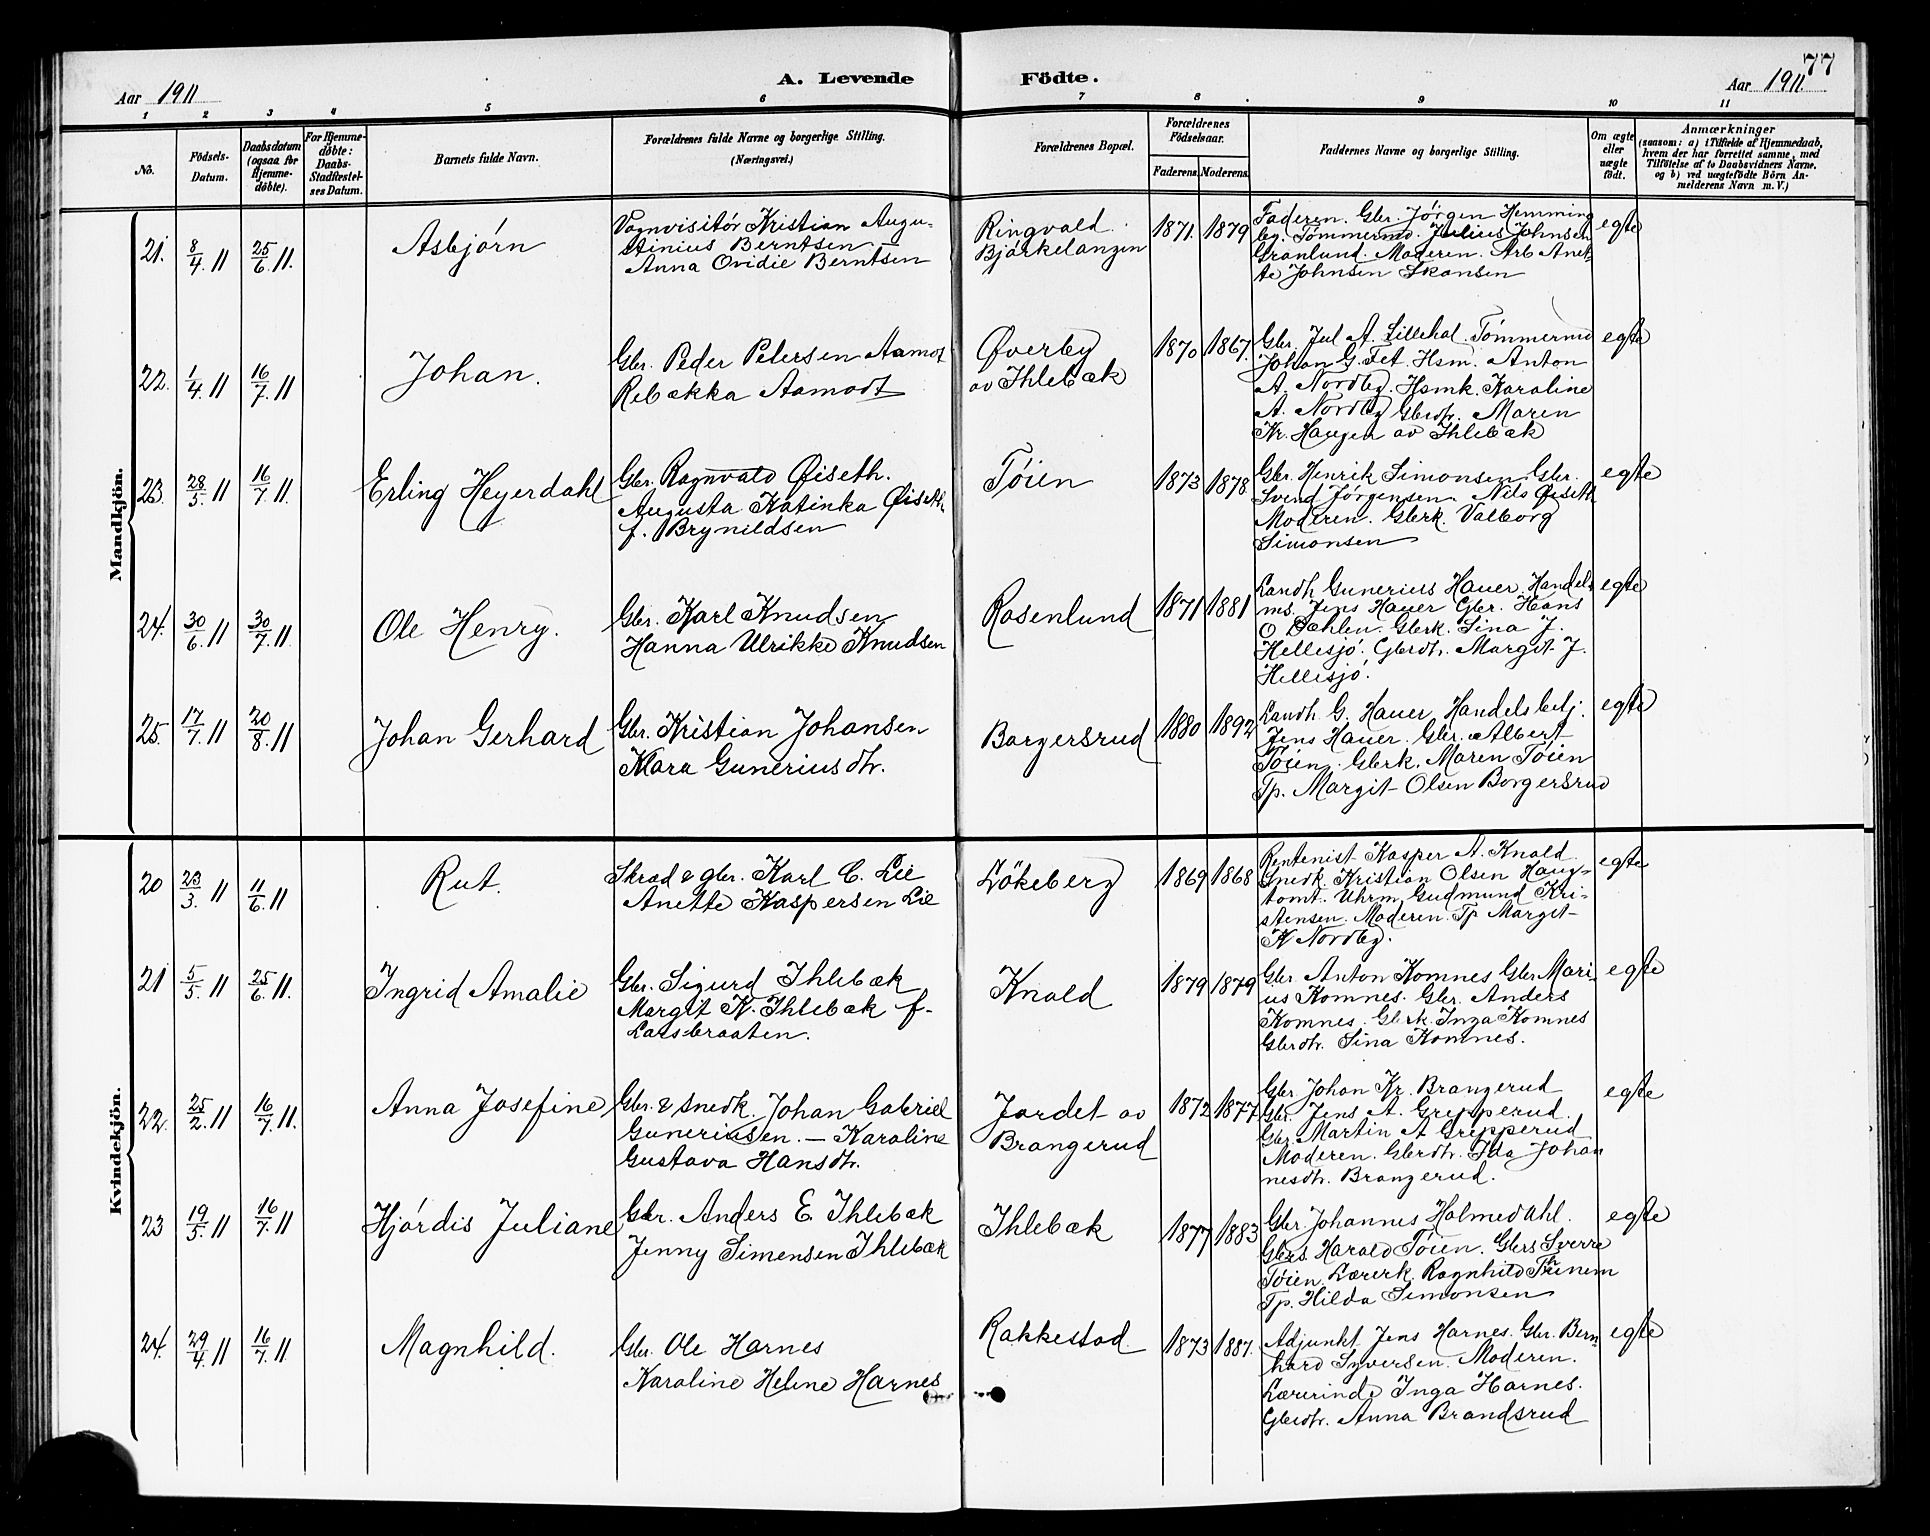 77
Aar 1911
A. Levende Födte.
Aar 1911.
1 2 3 4 5 6 7 8 9 10 11
No.
Födsels-Datum.
Daabsdatum (ogsaa for Hjemme-döbte).
For Hjemme-döbte: Daabs-Stadfæstel-ses Datum.
Barnets fulde Navn.
Forældrenes fulde Navne og borgerlige Stilling.
(Næringsvei.)
Forældrenes Bopæl.
Forældrenes Födselsaar.
Faderens. Moderens.
Faddernes Navne og borgerlige Stilling.
Om ægte eller uægte födt.
Anmærkninger
(saasom: a) i Tilfælde af Hjemmedaab,
hvem der har forrettet samme, med
Tilföielse af to Daabsvidners Navne,
og b) ved uægtefödte Börn An-
melderens Navn m. V.)
Mandkjön.
21. 8/4. 11 25/6. 11.
Asbjørn
Vognvisitør Kristian Augu-
stinius Berntsen
Anna Ovidie Berntsen
Ringvald
Bjørkelangen
1871. 1879
Faderen. Gbr. Jørgen Hemming
by. Tømmermd. Julius Johnsen
Grønlund. Moderen. Arb Anet-
te Johnsen Skansen
egte
22. 1/4 11 16/7. 11
Johan.
Gbr. Peder Petersen Aamot
Rebækka Aamodt
Øverby
av Ihlebæk
1870 1867.
Gbr. Jul A. Lillehol. Tømmermd
Johan G. Fet. Hsm. Anton
A. Nordby. Hsmk. Karoline
A. Nordby Gbrdtr. Maren
Kr. Haugen av Ihlebæk
egte
23. 28/5. 11 16/7 11.
Erling Heyerdahl
Gbr. Ragnvald Øiseth.
Augusta Katinka Øiseth
f. Brynildsen
Tøien
1873 1878
Gbr. Henrik Simonsen Gbr.
Svend Jørgensen. Nils Øiseth
Moderen. Gbrk. Valborg
Simonsen
egte
24. 30/6. 11 30/7. 11
Ole Henry.
Gbr. Karl Knudsen
Hanna Ulrikke Knudsen
Rosenlund
1871 1881
Landh Gunerius Hauer. Handels
ms. Jens Hauer Gbr. Hans
O Dæhlen. Gbrk. Lina J.
Hellesjø. Gbrdtr. Margit J.
Hellesjø.
egte
25. 17/7. 11 20/8. 11
Johan Gerhard
Gbr. Kristian Johansen
Klara Guneriusdtr.
Borgersrud
1880 1892
Landh G. Hauer Handelsbetj.
Jens Hauer. Gbr. Albert
Tøien. Gbrk. Maren Tøien
Tp. Margit Olsen Borgersrud
egte
Kvindekjön.
20 23/3. 11 11/6. 11
Rut.
Skræd & gbr. Karl C. Lie
Anette Kaspersen Lie
Løkeberg
1869 1868
Rentenist Kasper A. Knold
Snedk. Kristian Olsen Haug-
tomt. Uhrm Gudmund Kri-
stensen. Moderen. Tp Margit
K Nordby.
egte
21 5/5. 11 25/6. 11.
Ingrid Amalie
Gbr. Sigurd Ihlebæk
Margit K. Ihlebæk f.
Larsbraaten.
Knold
1879 1879
Gbr Anton Komnes Gbr Mari-
us Komnes. Gbr. Anders
Komnes. Gbrk. Inga Komnes
Gbrdtr. Sina Komnes.
egte
22. 25/2. 11 16/7. 11.
Anna Josefine
Gbr. & snedk. Johan Gabriel
Guneriusen. — Karoline
Gustava Hansdtr.
Jordet av
Brangerud
1872 1877
Gbr Johan Kr. Brangerud
Gbr. Jens A. Grepperud.
Gbr. Martin A Grepperud
Moderen. Gbrdtr. Ida Johan
nesdtr. Brangerud.
egte
23 19/5. 11 16/7. 11
Hjørdis Juliane
Gbr. Anders E. Ihlebæk
Jenny Simensen Ihlebæk
Ihlebæk
1877 1883
Gbr. Johannes Holmedahl.
Gbrs. Harald Tøien. Gbrs Sverre
Tøien. Lærerk. Ragnhild Thunem
Tp. Hilda Simonsen
egte
24. 29/4 11 16/7. 11
Magnhild.
Gbr. Ole Harnes
Karoline Helene Harnes
Rakkestad
1873 1887.
Adjunkt Jens Harnes. Gbr. Bern-
hard Syversen. Moderen.
Lærerinde Inga Harnes.
Gbrdtr. Anna Brandsrud
egte